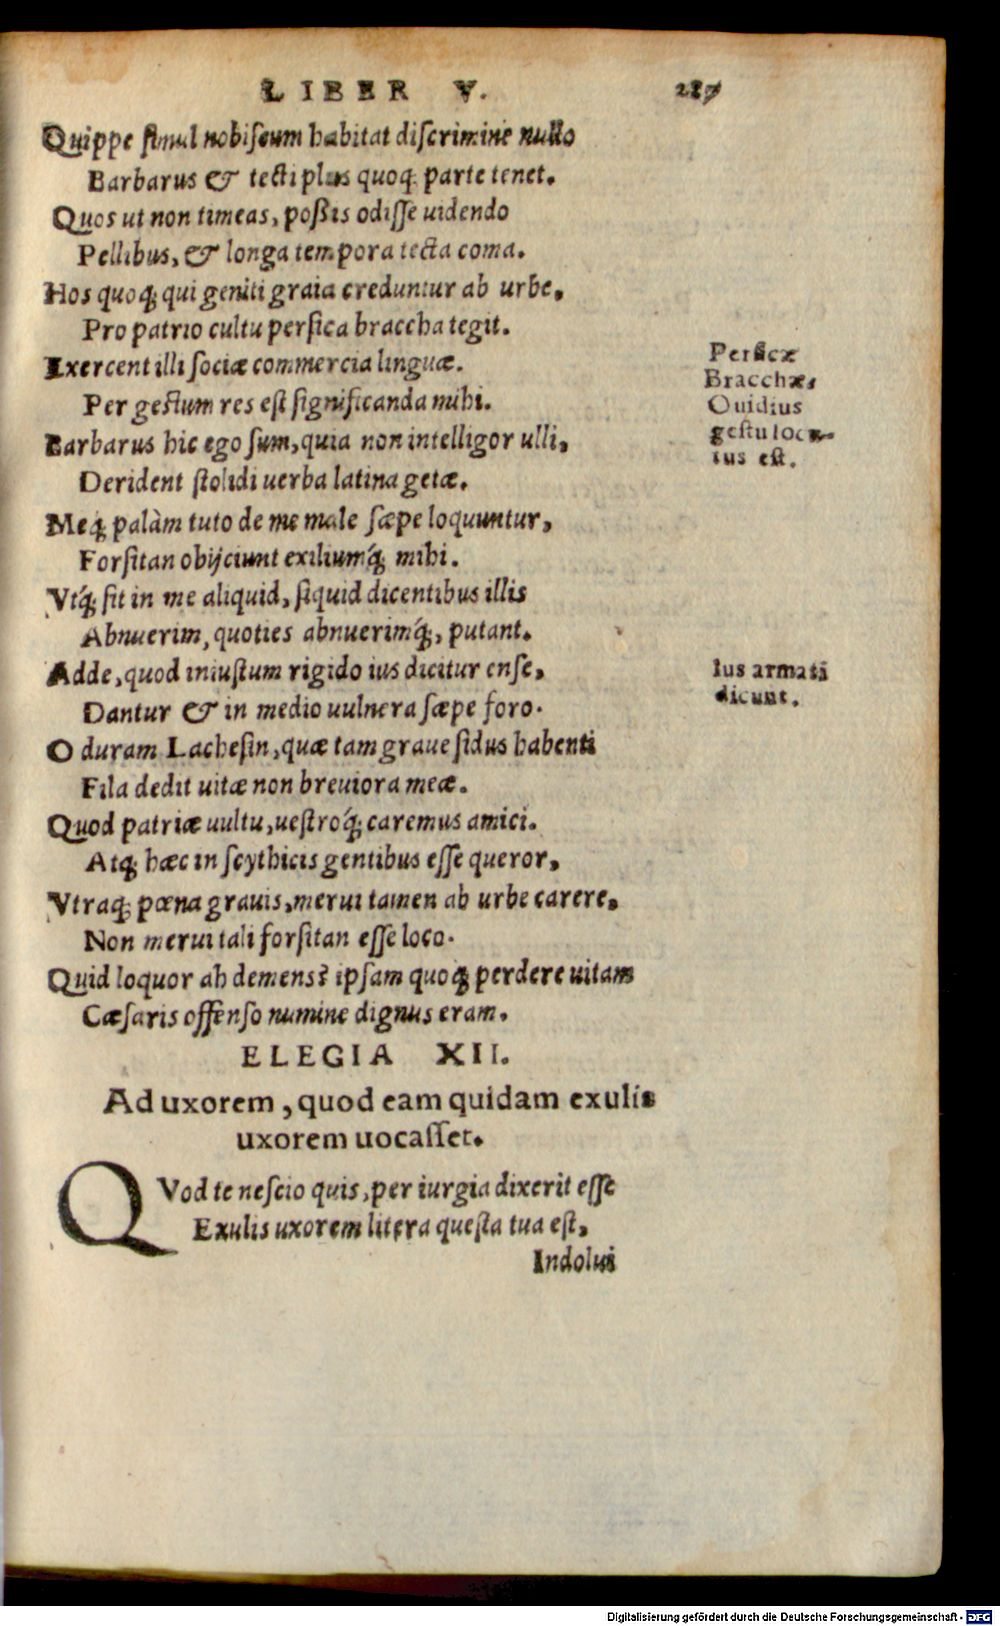 LIBER V. 287
Quippe simul nobiscum habitat discrimine nullo
Barbarus & tecti plus quoq; parte tenet.
Quos ut non timeas, poßis odisse uidendo
Pellibus, & longa tempora tecta coma.
Hos quoq; qui geniti graia creduntur ab urbe,
Pro patrio cultu persica braccha tegit.
Exercent illi sociæ commercia linguæ.
Per gestum res est significanda mihi.
Barbarus hic ego sum, quia non intelligor ulli,
Derident stolidi uerba latina getæ.
Meq; palàm tuto de me male sæpe loquuntur,
Forsitan obijciunt exiliumq́; mihi.
Vtq́; fit in me aliquid, siquid dicentibus illis
Abnuerim, quoties abnuerimq́;, putant.
Adde, quod iniustum rigido ius dicitur ense,
Dantur & in medio uulnera sæpe foro.
O duram Lachesin, quæ tam graue sidus habenti
Fila dedit uitæ non breuiora meæ.
Quod patriæ uultu, uestroq́; caremus amici.
Atq; hæc in scythicis gentibus esse queror,
Vtraq; pœna grauis, merui tamen ab urbe carere,
Non merui tali forsitan esse loco.
Quid loquor ah demens? ipsam quoq; perdere uitam
Cæsaris offenso numine dignus eram.
Persicæ
Bracchæ,
Ouidius
gestu locu-
tus est.
Ius armati
dicunt.
ELEGIA XII.
Ad uxorem, quod eam quidam exulis
uxorem uocasset.
QVod te nescio quis, per iurgia dixerit esse
Exulis uxorem litera questa tua est,
Indolui
Digitalisierung gefördert durch die Deutsche Forschungsgemeinschaft - DFG